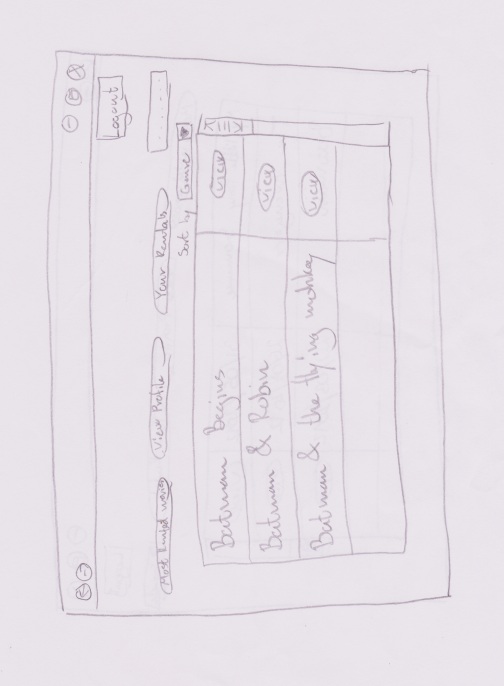 Logout
Most Rented movies View Profile Your Rentals
Sort by Genre
Batman Begins View
Batman & Robin View
Batman & the flying monkey View